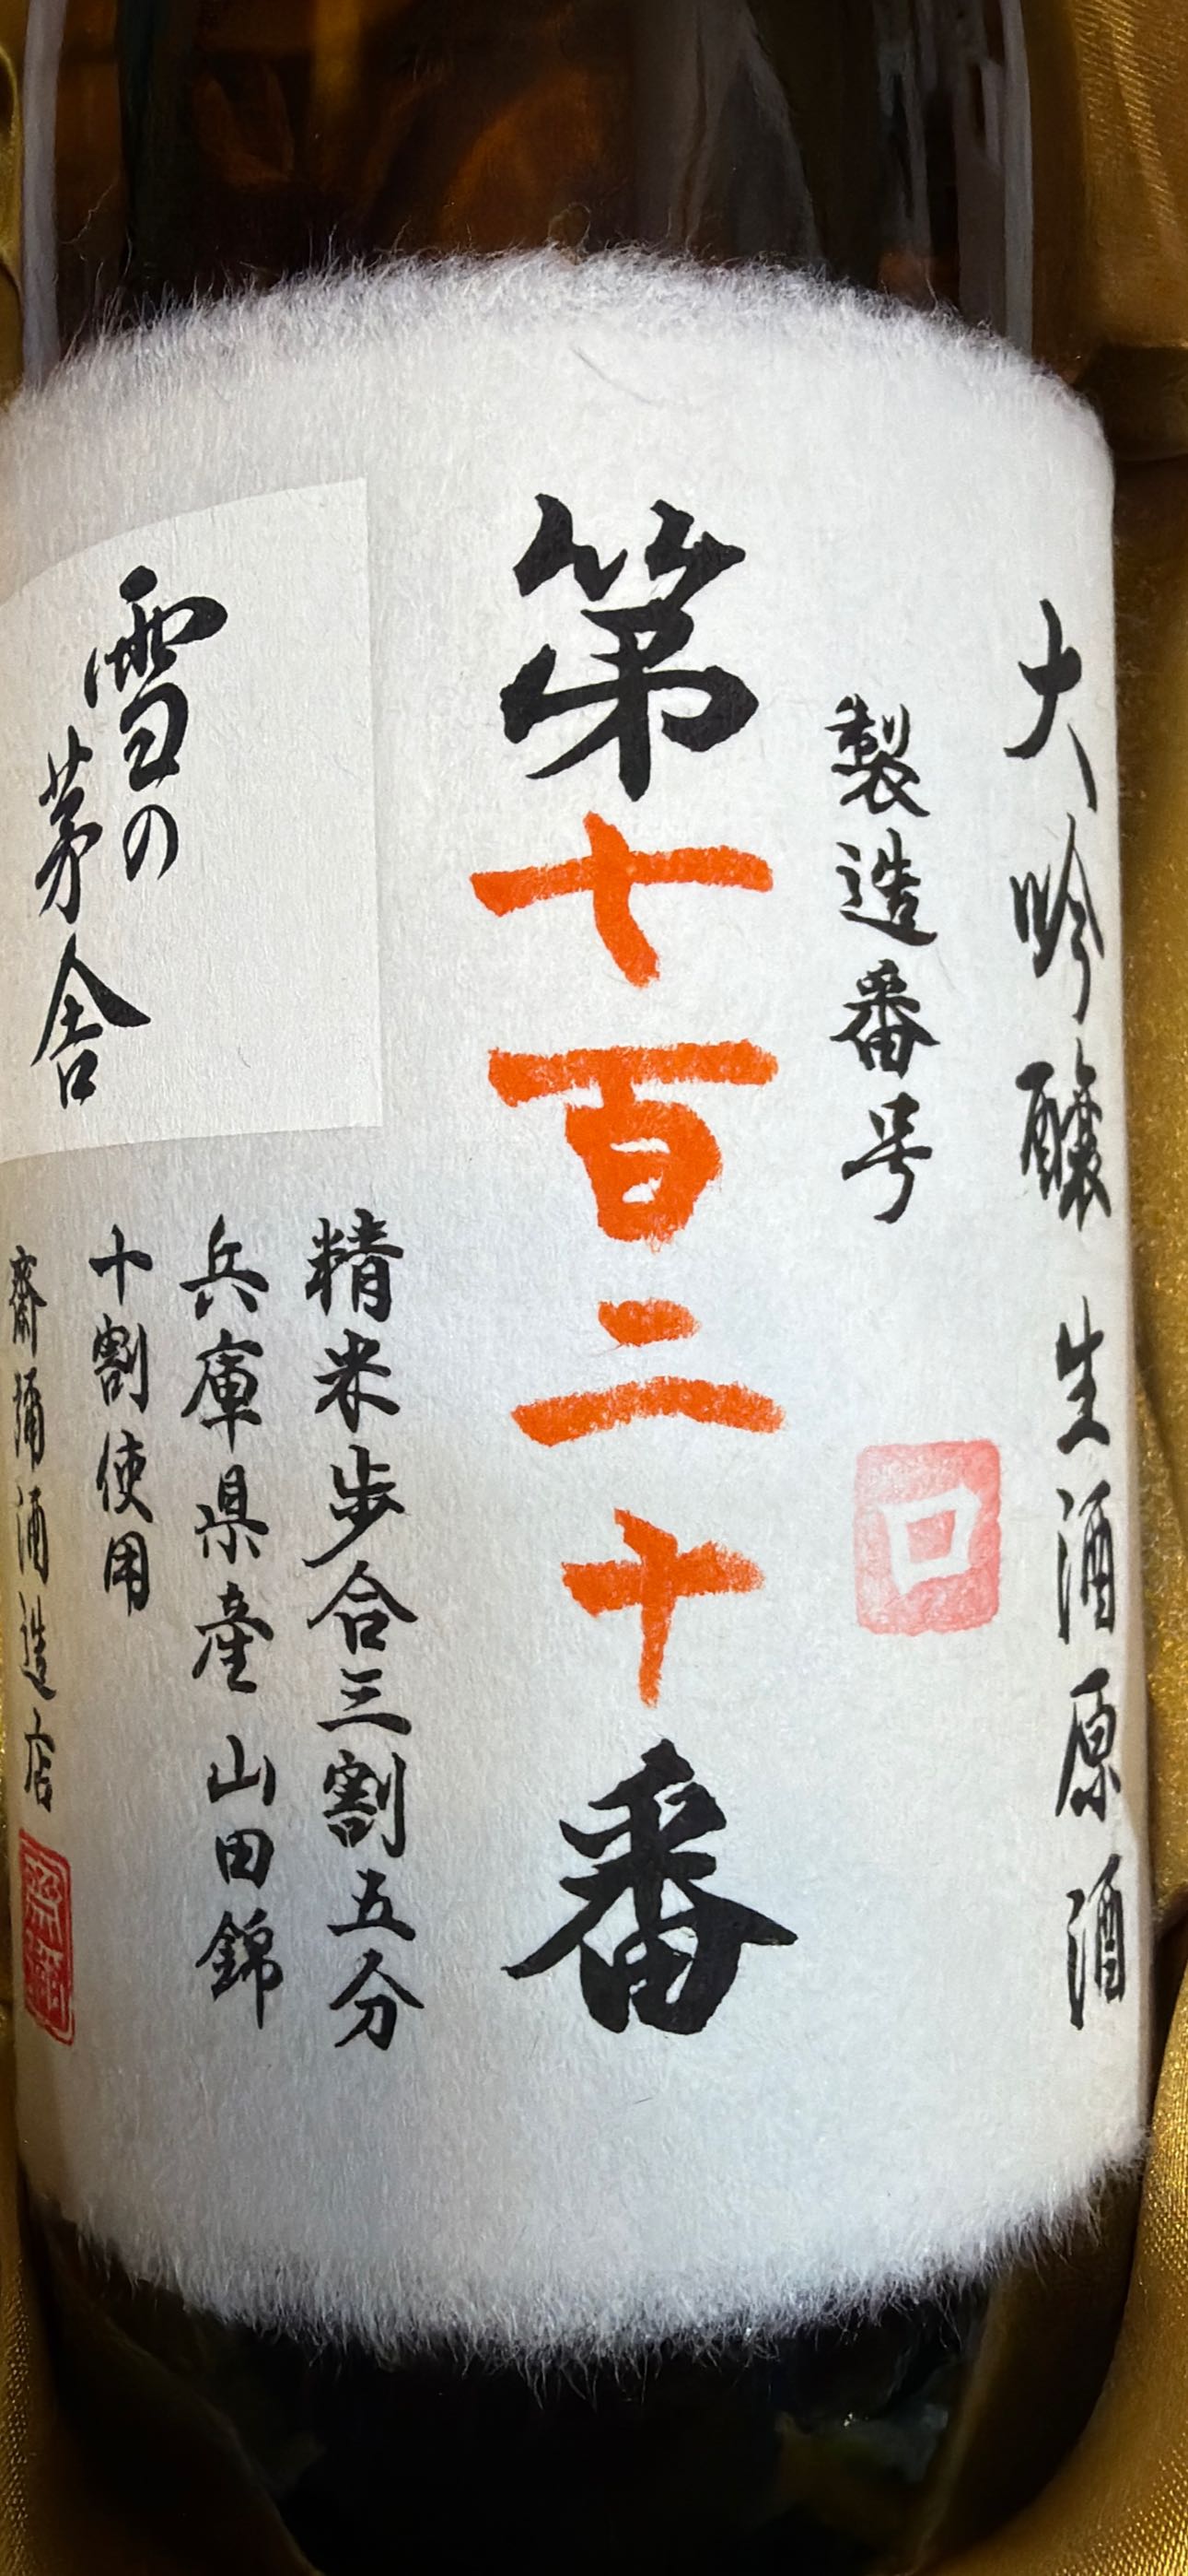 大吟醸 生酒原酒
製造番号
口
第七百二十番
雪の
茅舎
精米歩合三割五分
兵庫県産山田錦
十割使用
齋彌酒造店